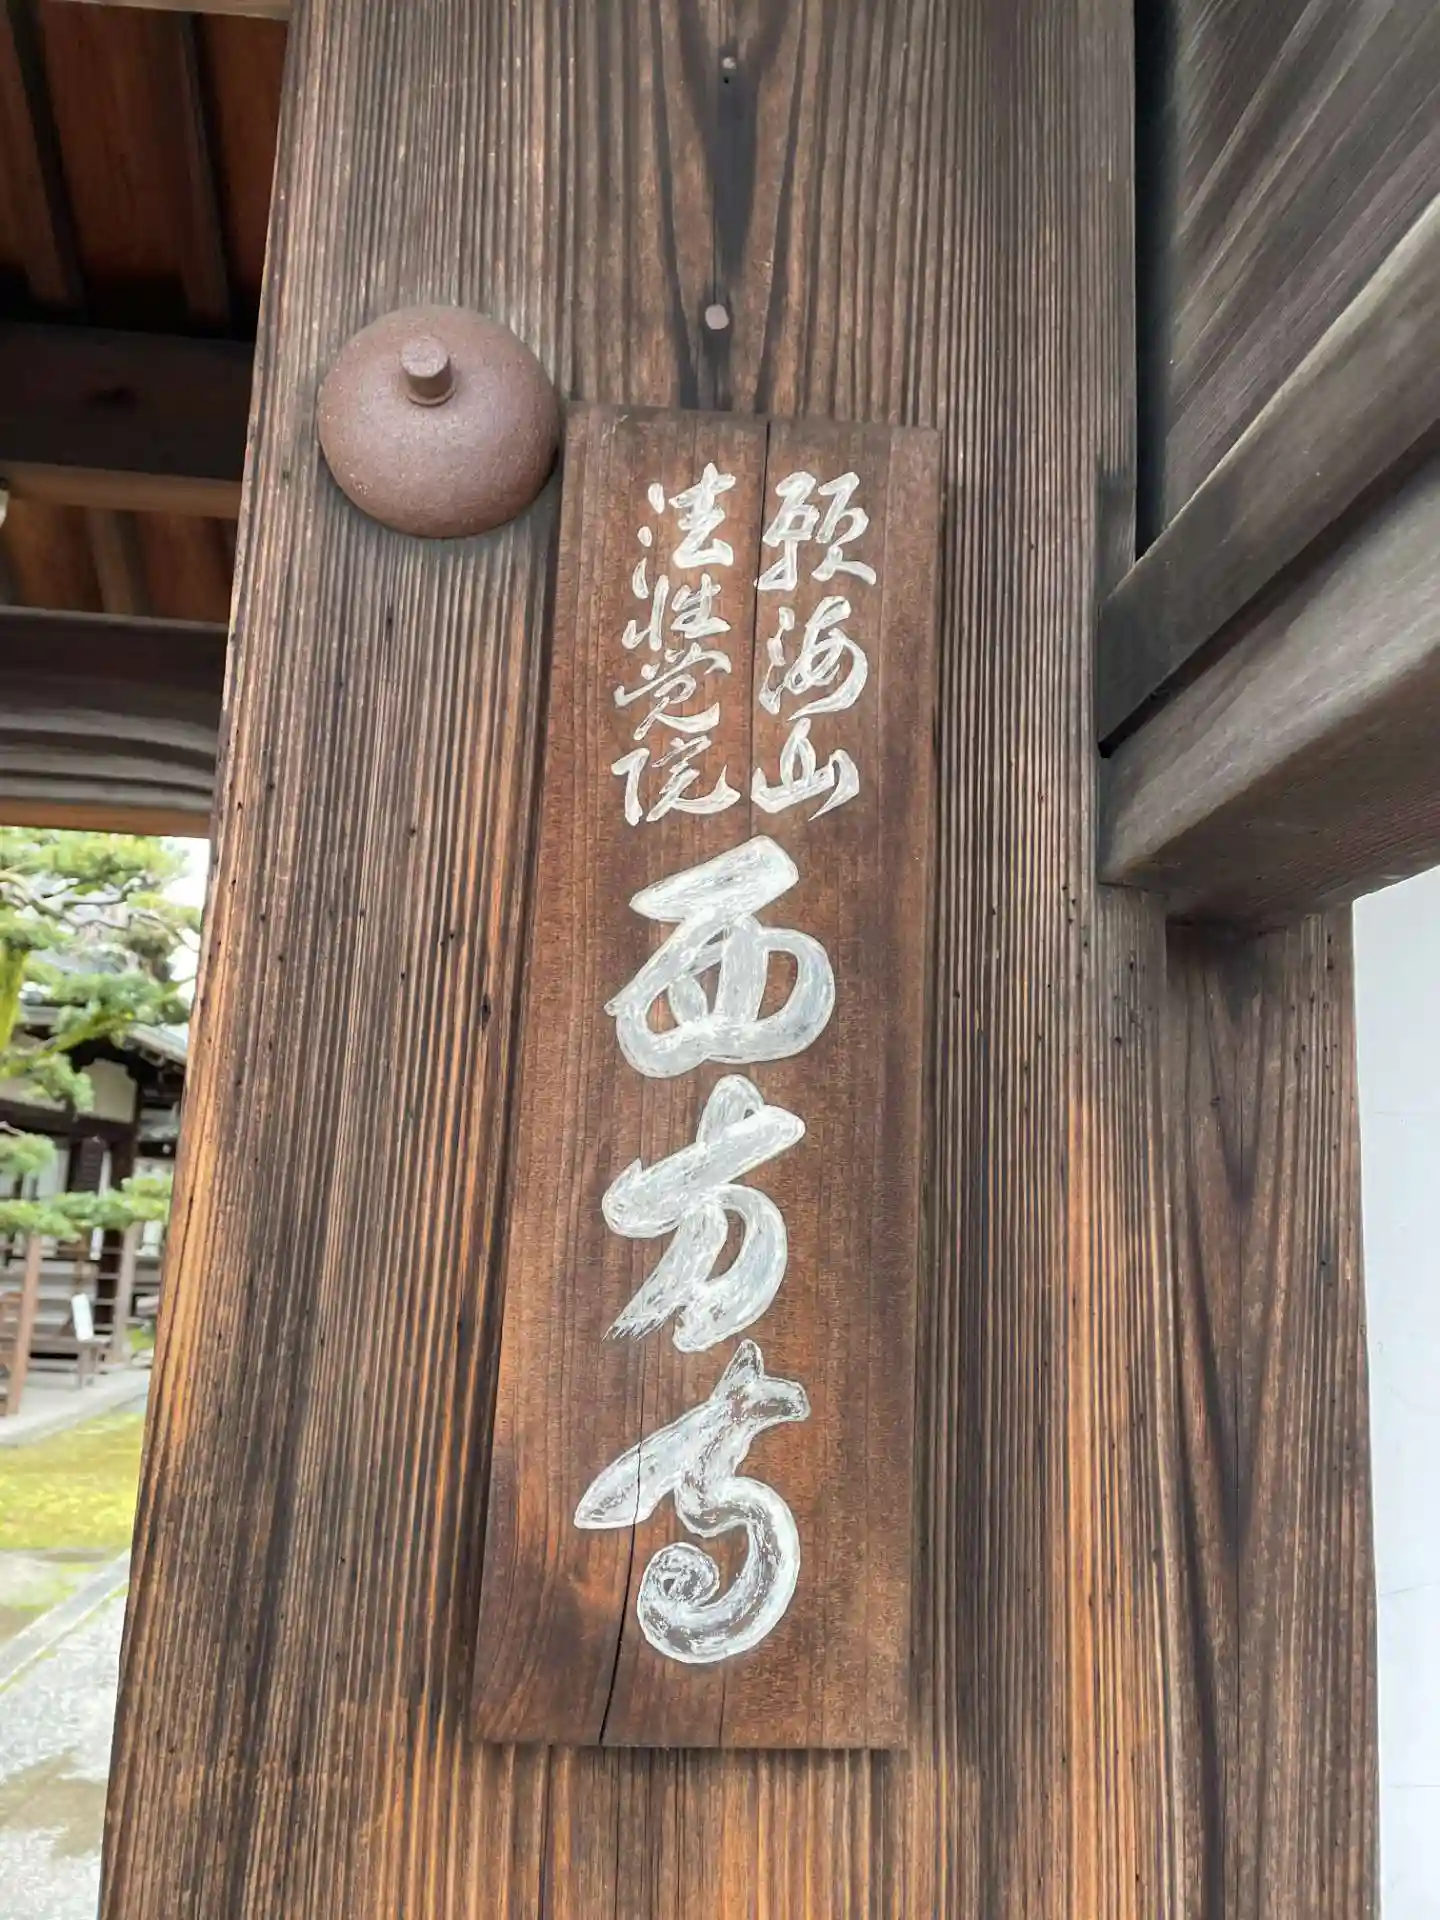 願海山
法性覚院
西方寺